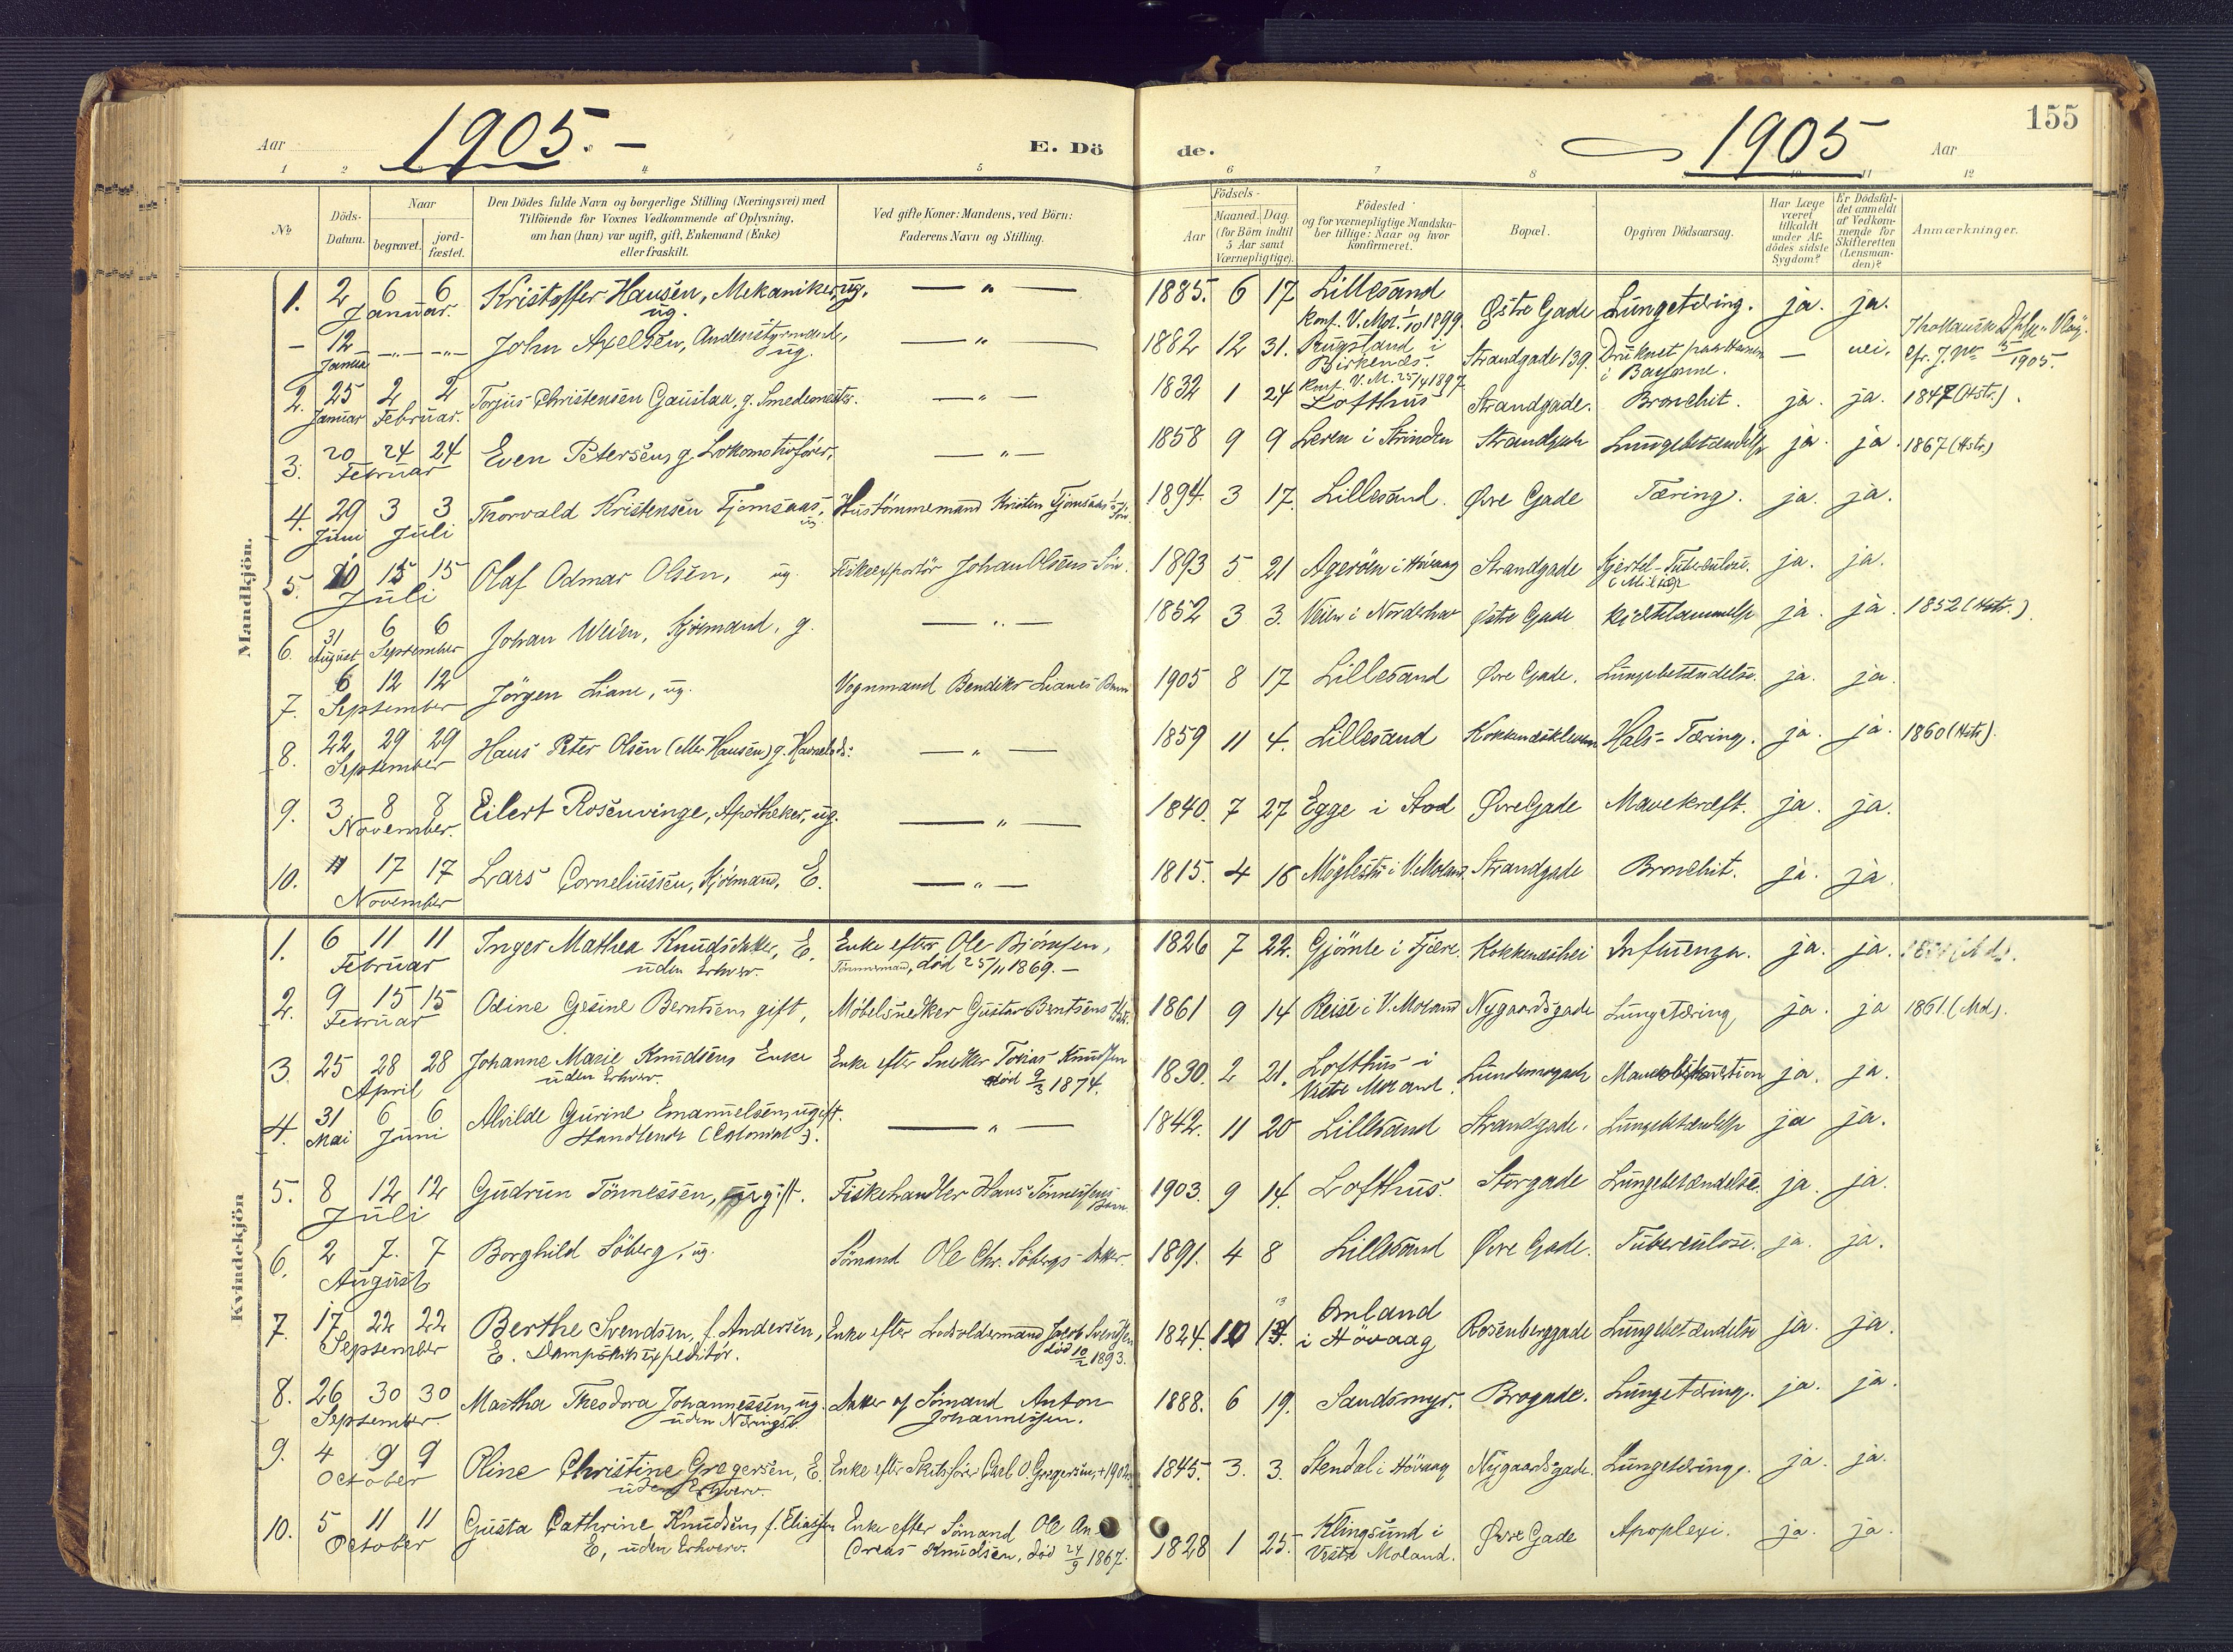 Aar 1905. –
E. Dö
de.
1905
Aar
155
1 2 4 5 6 7 8 11 12
No
Döds-Datum.
Naar
begravet.
jord-fæstet.
Den Dödes fulde Navn og borgerlige Stilling (Næringsvei) med
Tilföiende for Voxnes Vedkommende af Oplysning,
om han (hun) var ugift, gift, Enkemand (Enke)
eller fraskilt.
Ved gifte Koner: Mandens, ved Börn:
Faderens Navn og Stilling.
Födsels-
Aar
Maaned. Dag.
(for Börn indtil
5 Aar samt
Værnepligtige).
Födested
og for værnepligtige Mandska-
ber tillige: Naar og hvor
konfirmeret.
Bopæl.
Opgiven Dödsaarsag.
Har Læge
været
tilkaldt
under Af-
dödes sidste
Sygdom?
Er Dödsfal-
det anmeldt
af Vedkom-
mende for
Skifteretten
(Lensman-
den)?
Anmærkninger.
Mandkjön.
1. 2 6 6 Januar. Kristoffer Hansen, Mekaniker, ug. ug. — " — 1885. 6 17 Lillesand Konf. V. Mol. 1/10 1899. Østre Gade Lungetæring. ja. ja.
– 12 Januar –"– –"– John Axelsen, Andenstyrmand, ug. — " — 1882 12 31. Rugsland i Birkenes. Konf. V. M. 25/4 1897. Strandgade 139. Druknet paa Havnen i Bayonne. — nei. cfr. J. No 5/1905.
2. 25 Januar 2 2 Februar. Torjus Christensen Gauslaa, g. Smedemester. — " — 1832 1 24 Lofthus Strandgade. Bronchit. ja. ja. 1847 (Att.).
3. 20 24 24 Februar Even Petersen, g. Lokomotivfører, — " — 1858 9 9 Leren i Strinden Strandgade Lungebetændelse ja. ja. 1867 (Attr.)
4. 29 Juni 3 3 Juli Thorvald Kristensen Tjomsaas, ug. Hustømmermand Kristen Tjomsaas's Søn. 1894. 3 17. Lillesand. Øvre Gade Tæring. ja. ja.
5. 10 15 15 Juli Olaf Odmar Olsen, ug. Fiskeexportør Johan Olsens Søn. 1893 5 21 Agerøen i Høivaag Strandgade Kjertel-Tuberculose. ja. ja.
6. 31 August 6 6 September Johan Weien, Sjømand, g. — " — 1852 3 3. Østre Gade Hjertelammelse ja. ja. 1852 (Attr.)
7. 6 12 12 September Jörgen Liane, ug. Vognmand Bendiks Lianes Barn 1905 8 17 Lillesand Øvre Gade. Lungebetændelse. ja. ja.
8. 22 29 29 September Hans Peter Olsen (eller Hansen) g. — " — 1859 11 4. Lillesand Kokkenæskleven Hals-Tæring. ja. ja. 1860 (Attr).
9. 3 8 8 November. Eilert Rosenvinge, Apotheker, ug. — " — 1840. 7 27 Egge i Stod Øvre Gade Mavekræft. ja. ja.
10. 11 17 17 November Lars Corneliussen, Sjømand, E. — " — 1815. 4 16 Möglestu i V. Moland. Strandgade Bronchit. ja. ja.
Kvindekjön
1. 6 11 11 Februar Inger Mathea Knudsdatter, E. uden Erhverv. Enke efter Ole Bjørnsen, Tømmermand, død 25/11 1869. – 1826 7 22. Gjömle i Fjære. Kokkenæshei Influenza. ja. ja.
2. 9 15 15 Februar Odine Gesine Berntsen, gift, Møbelsnedker Gustav Berntsens Hstr. 1861 9 14 Reise i V. Moland Nygaardsgade Lungetæring ja. ja 1861. (Md).
3. 25 28 28 April Johanne Marie Knudsen, Enke uden Erhverv. Enke efter Snedker Tobias Knudsen død 9/3 1874. 1830. 2 21. Lofthus i Vestre Moland. Maveobstruction ja. ja.
4. 31 Mai 6 6 Juni Alvilde Gurine Emanuelsen, ugift. Handlende (Colonial). — " — 1842. 11 20 Lillesand Strandgade. Lungebetændelse ja ja.
5. 8 12 12 Juli Gudrun Tönnessen, ugift. Fiskehandler Hans Tönnessens Barn. 1903. 9 14. Lofthus. Storgade Lungebetændelse. ja. ja.
6. 2 7. 7 August Borghild Söberg, ug. Sömand Ole Chr. Söbergs Datter. 1891. 4 8 Lillesand Øvre Gade. Tuberculose. ja. ja.
7. 17 22 22 September Berthe Svendsen, f. Andersen, E. Dampskibsexpeditör. Enke efter Lodsoldermand Jacob Svendsen død 10/2 1893. 1824. 10 13 Omland i Hövaag Rosenberggade Lungebetændelse ja. ja.
8. 26 30 30 September. Martha Theodora Johannessen, ug. uden Næringsv. Datter af Sömand Anton Johannessen. 1888. 6 19. Sandsmyr. Brogade. Lungetæring. ja. ja.
9. 4 9 9 October Oline Christine Gregersen, E. uden Erhverv. Enke efter Skibsfører Carl O. Gregersen, + 1902 1845. 3. 3. Stendal i Hövaag Nygaardsgade. Lungetæring. ja. ja.
10. 5 11 11 October Gusta Cathrine Knudsen, f. Eliassen E, uden Erhverv. Enke efter Sömand Ole Andreas Knudsen, död 24/9 1867. 1828 1 25. Klingsund i Vestre Moland. Øvre Gade Apoplexi. ja. ja.